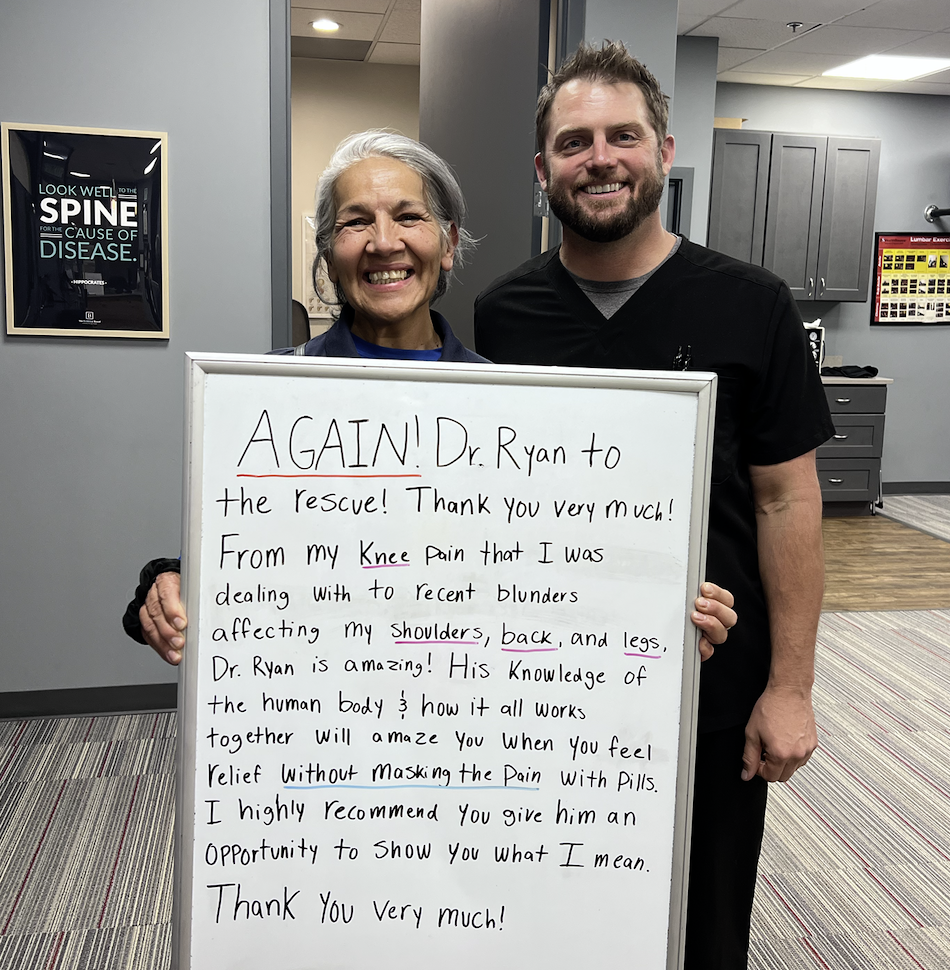 LOOK WELL TO THE
SPINE
FOR THE CAUSE OF
DISEASE.
-HIPPOCRATES-
Lumbar Exerci
AGAIN! Dr. Ryan to
the rescue! Thank you very much!
From my Knee pain that I was
dealing with to recent blunders
affecting my shoulders, back, and legs,
Dr. Ryan is amazing! His Knowledge of
the human body & how it all works
together will amaze you when you feel
relief without masking the pain with pills.
I highly recommend you give him an
opportunity to show you what I mean.
Thank you very much!